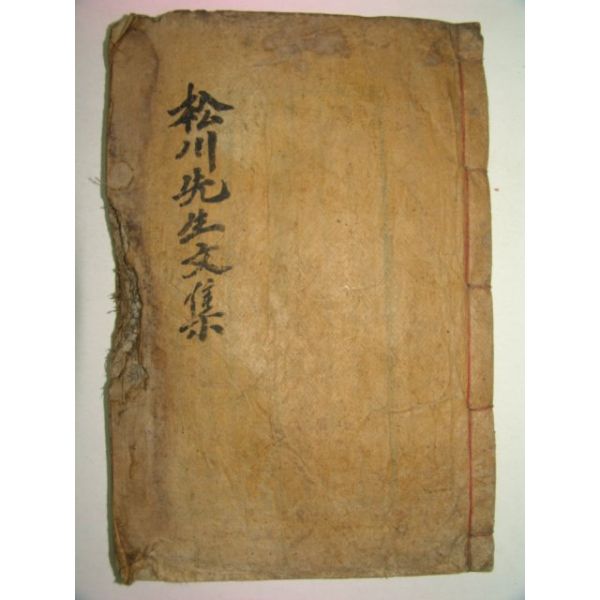 松川先生文集